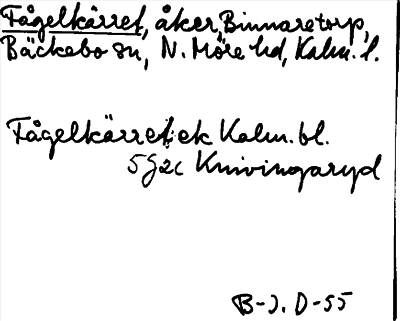 Fågelkärret, åker, Binnaretorp,
Bäckebo sn, N. Möre hd, Kalm. l.
Fågelkärret: ek Kalm. bl.
5G2c Knivingaryd
B-J. D-55